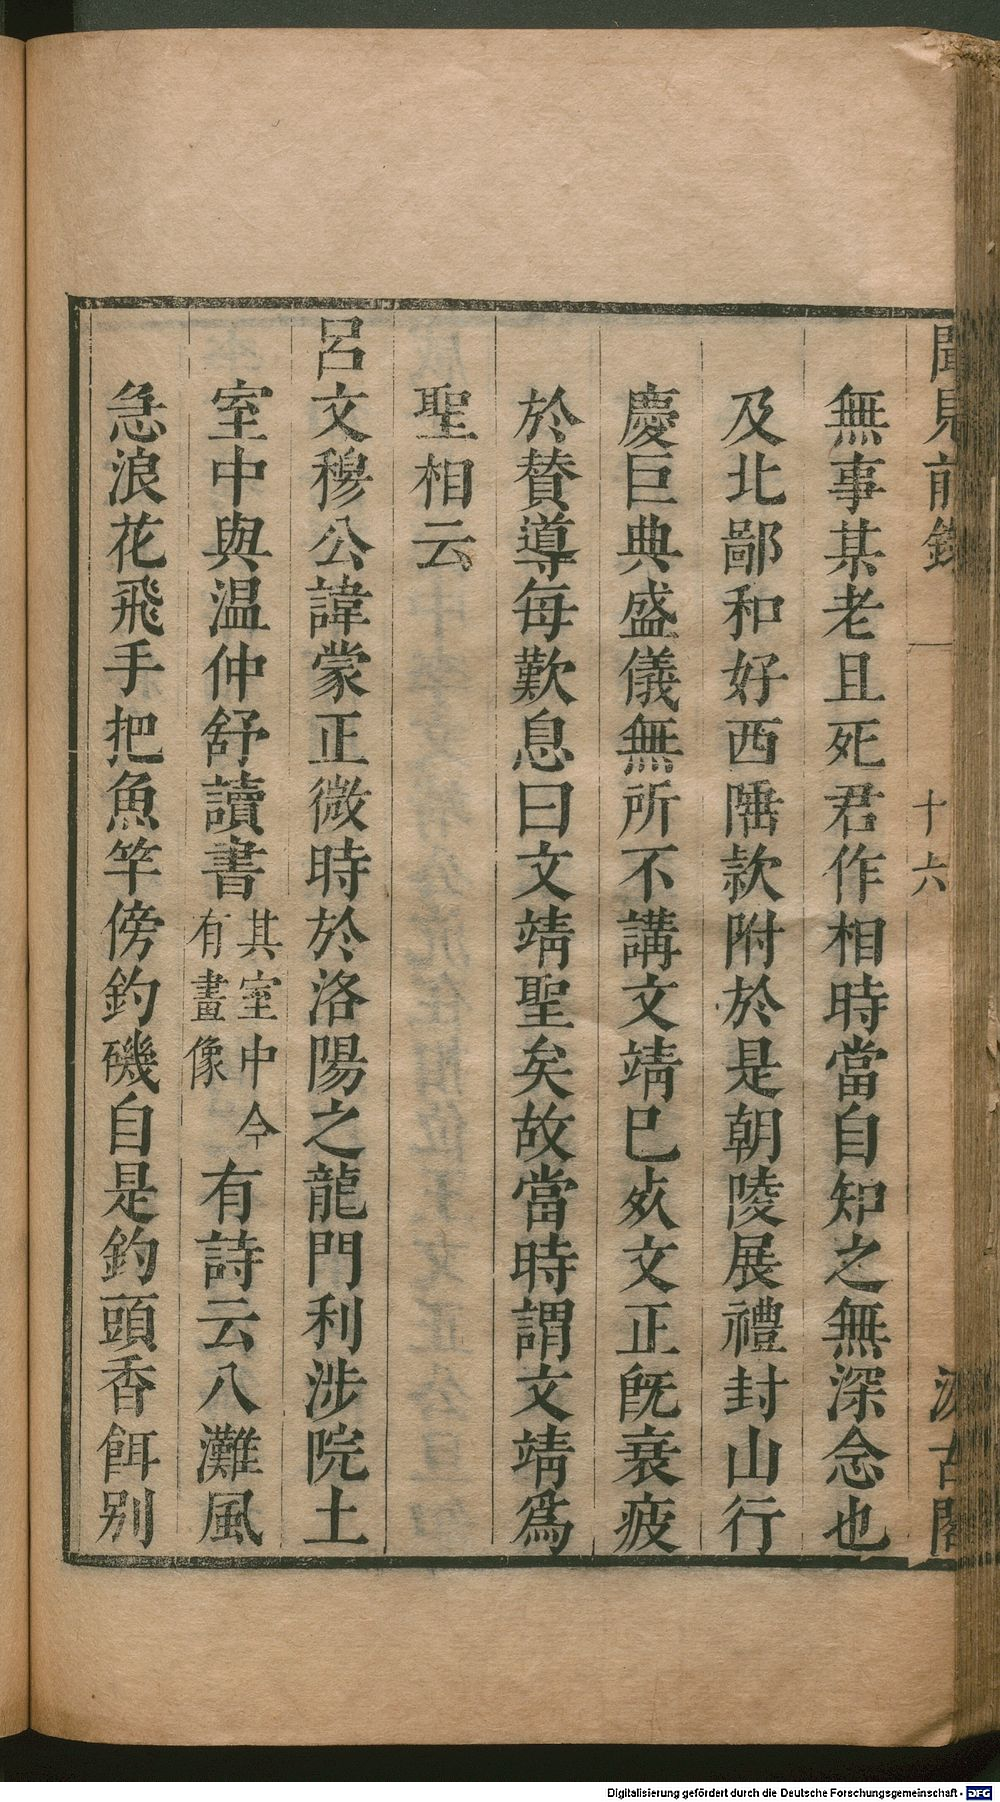 聞見前錄
十六
汲古閣
無事某老且死君作相時當自知之無深念也
及北鄙和好西陲款附於是朝陵展禮封山行
慶巨典盛儀無所不講文靖已歿文正旣衰疲
於贊導每歎息曰文靖聖矣故當時謂文靖爲
聖相云
呂文穆公諱蒙正微時於洛陽之龍門利涉院土
室中與温仲舒讀書其室中今有畫像有詩云八灘風
急浪花飛手把魚竿傍釣磯自是釣頭香餌别
Digitalisierung gefördert durch die Deutsche Forschungsgemeinschaft - DFG